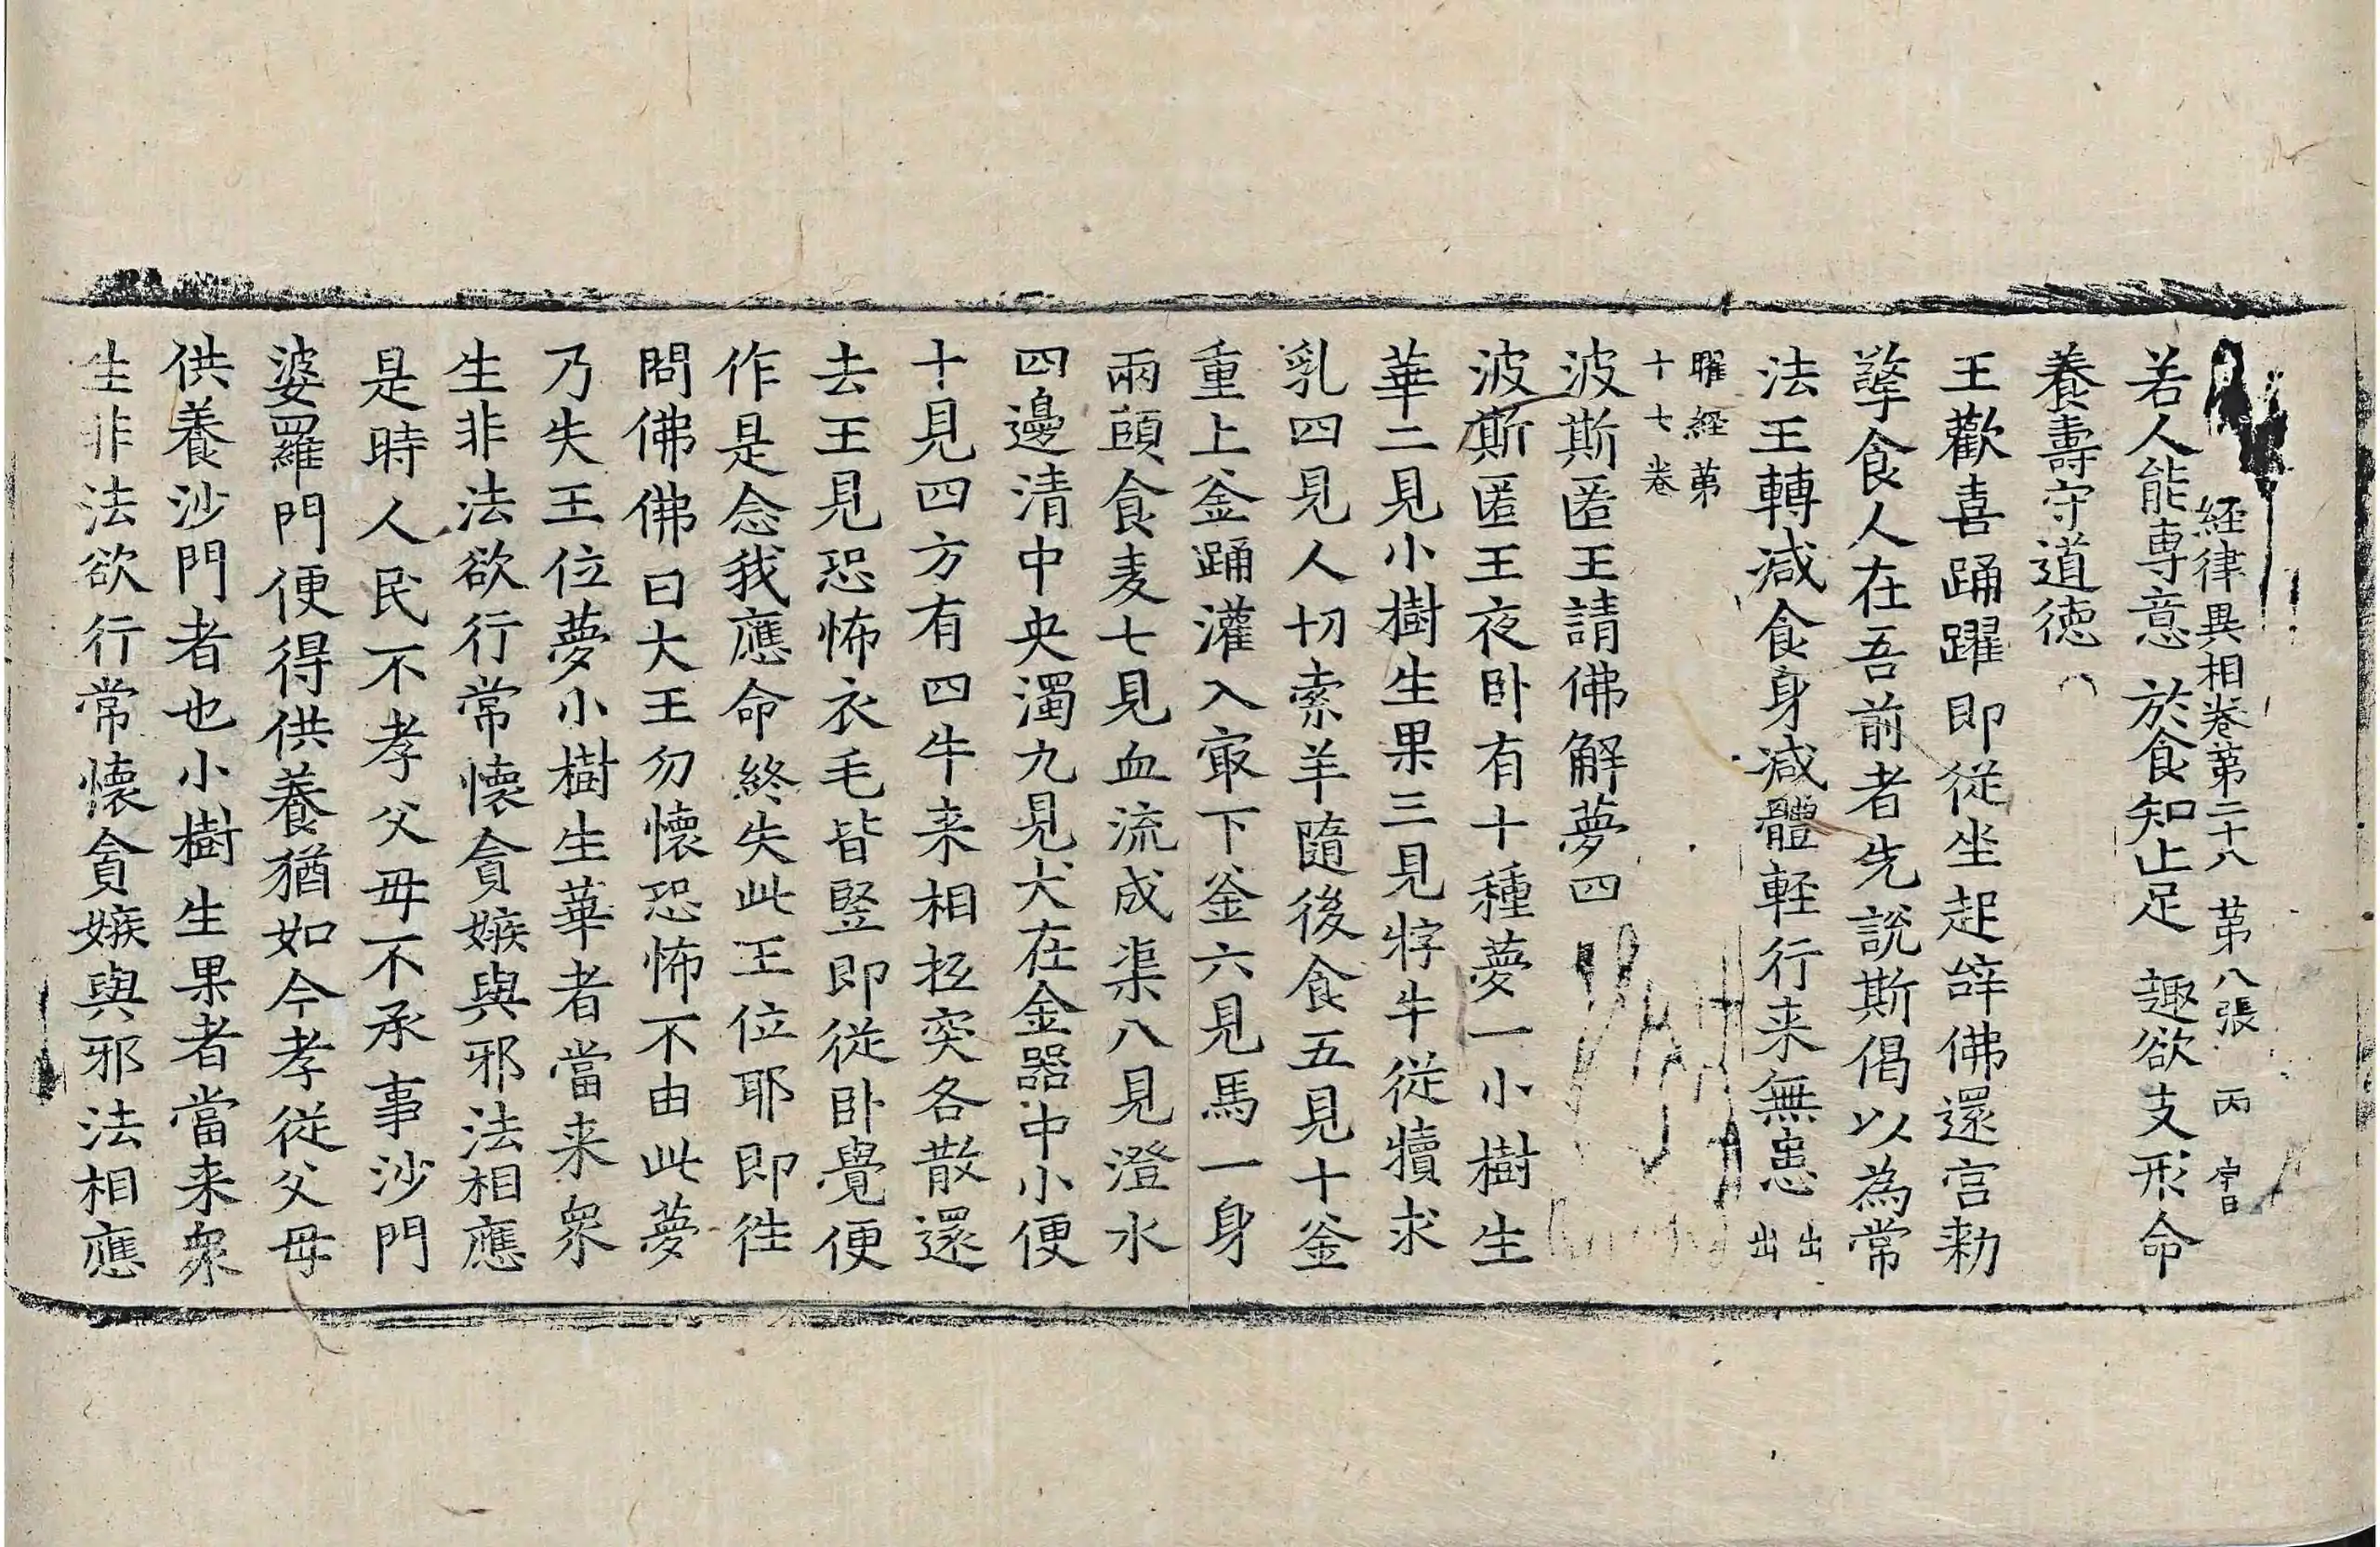 経律異相卷第二十八 第八張 丙
若人能専意 於食知止足 趣欲支形命
養壽守道徳
王歡喜踊躍即従坐起辝佛還宫勑
擎食人在吾前者先說斯偈以為常
法王轉减食身减體軽行来無患出出
曜經第
十七卷
波斯匿王請佛解夢四
波斯匿王夜卧有十種夢一小樹生
華二見小樹生果三見牸牛従犢求
乳四見人切索羊隨後食五見十釜
重上釜踊灌入㝡下釜六見馬一身
兩頭食麦七見血流成渠八見澄水
四邊清中央濁九見犬在金器中小便
十見四方有四牛来相抵突各散還
去王見恐怖衣毛皆竪即従卧覺便
作是念我應命終失此王位耶即往
問佛佛曰大王勿懷恐怖不由此夢
乃失王位夢小樹生華者當来衆
生非法欲行常懷貪嫉與邪法相應
是時人民不孝父母不承事沙門
婆羅門便得供養猶如今孝従父母
供養沙門者也小樹生果者當来衆
生非法欲行常懷貪嫉與邪法相應